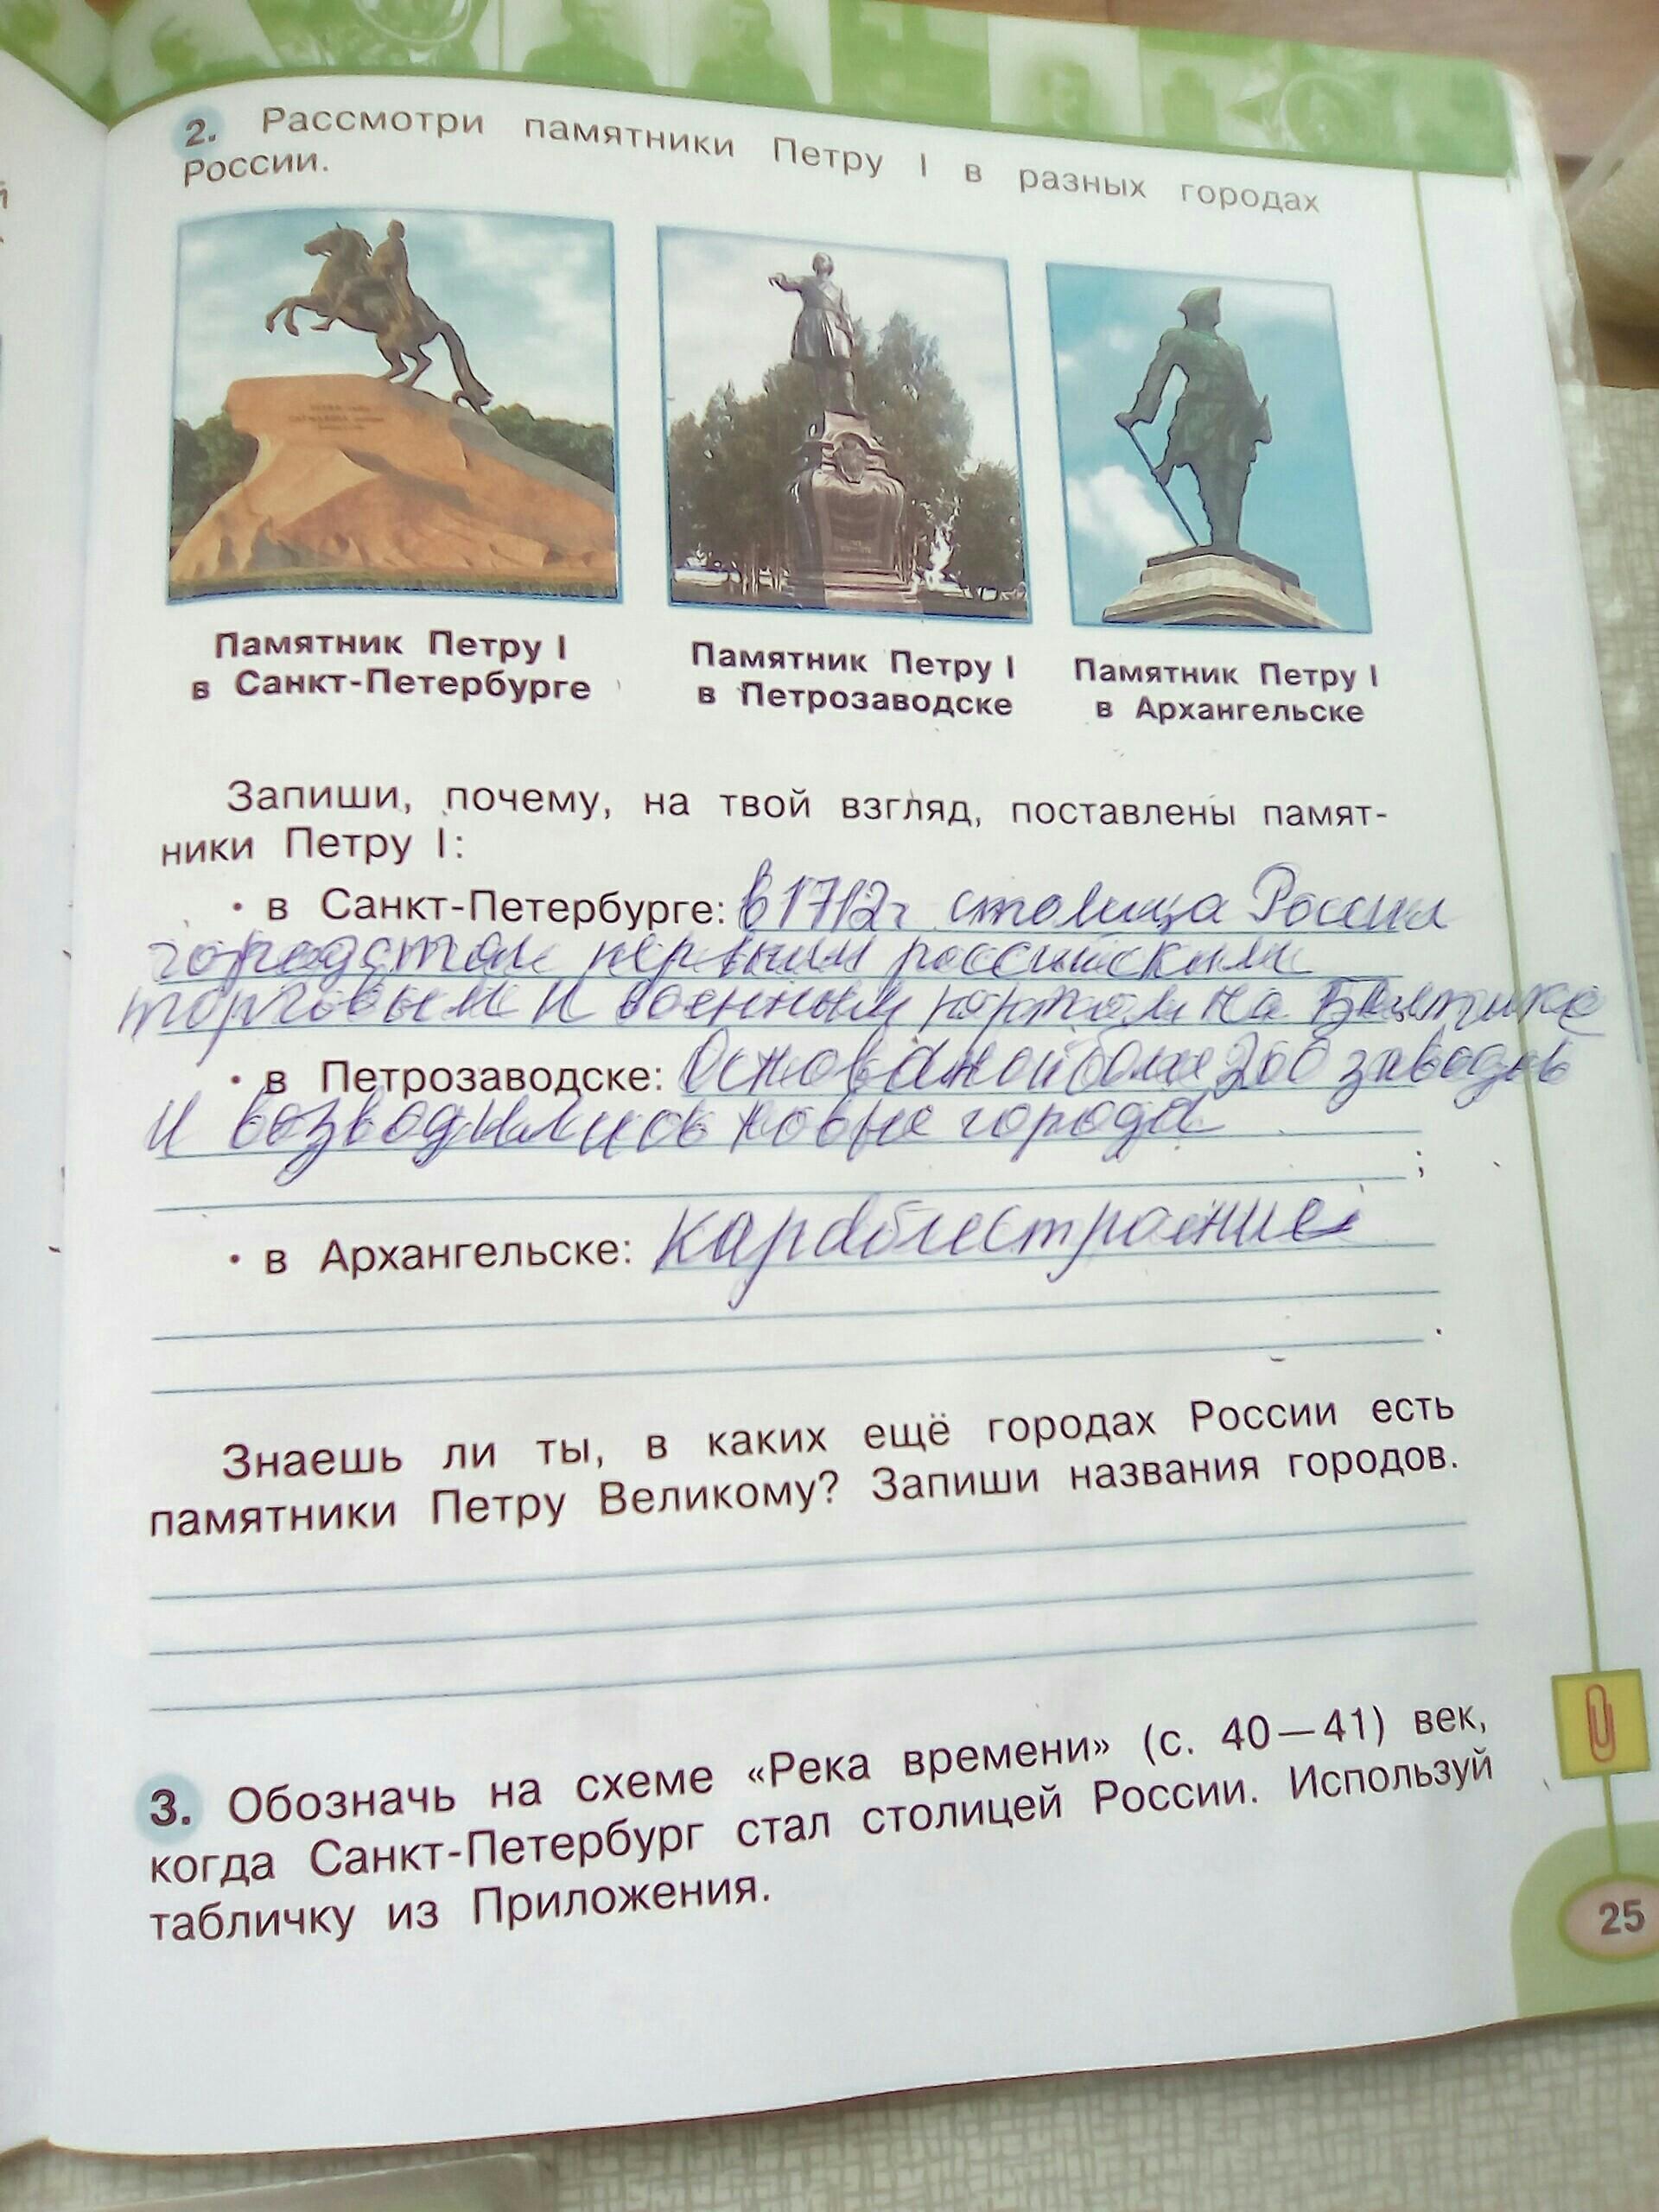 2. Рассмотри памятники Петру I в разных городах
России.
Памятник Петру I
в Санкт-Петербурге
Памятник Петру I
в Петрозаводске
Памятник Петру I
в Архангельске
Запиши, почему, на твой взгляд, поставлены памят-
ники Петру I:
• в Санкт-Петербурге: в 1712г столица России
город стал первым российским
торговым и военным портом на Балтике
• в Петрозаводске: Основаной более 200 заводов
и возводились новые города
;
• в Архангельске: караблестроение
.
Знаешь ли ты, в каких ещё городах России есть
памятники Петру Великому? Запиши названия городов.
3. Обозначь на схеме «Река времени» (с. 40—41) век,
когда Санкт-Петербург стал столицей России. Используй
табличку из Приложения.
25